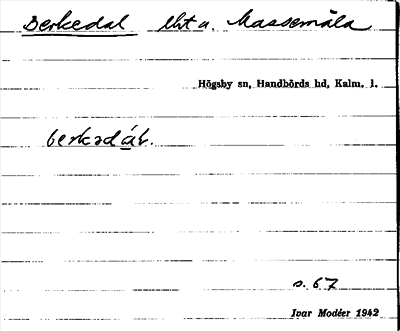 Berkedal lht u. Massemåla
Högsby sn, Handbörds hd, Kalm. l.
berkədál.
s. 67
Ivar Modéer 1942